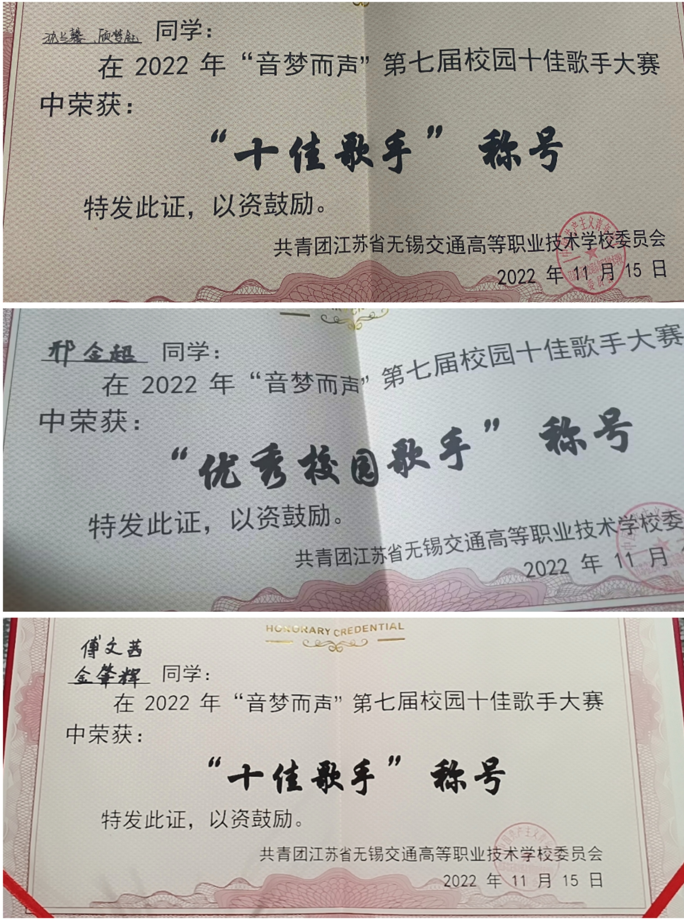 同学：
在 2022 年“音梦而声”第七届校园十佳歌手大赛
中荣获：
“十佳歌手”称号
特发此证，以资鼓励。
共青团江苏省无锡交通高等职业技术学校委员会
2022 年 11 月 15 日
邢金超 同学：
在 2022 年“音梦而声”第七届校园十佳歌手大赛
中荣获：
“优秀校园歌手”称号
特发此证，以资鼓励。
共青团江苏省无锡交通高等职业技术学校委
2022 年 11 月
HONORARY CREDENTIAL
傅文茜
金肇辉 同学：
在 2022 年“音梦而声”第七届校园十佳歌手大赛
中荣获：
“十佳歌手”称号
特发此证，以资鼓励。
共青团江苏省无锡交通高等职业技术学校委员会
2022 年 11 月 15 日